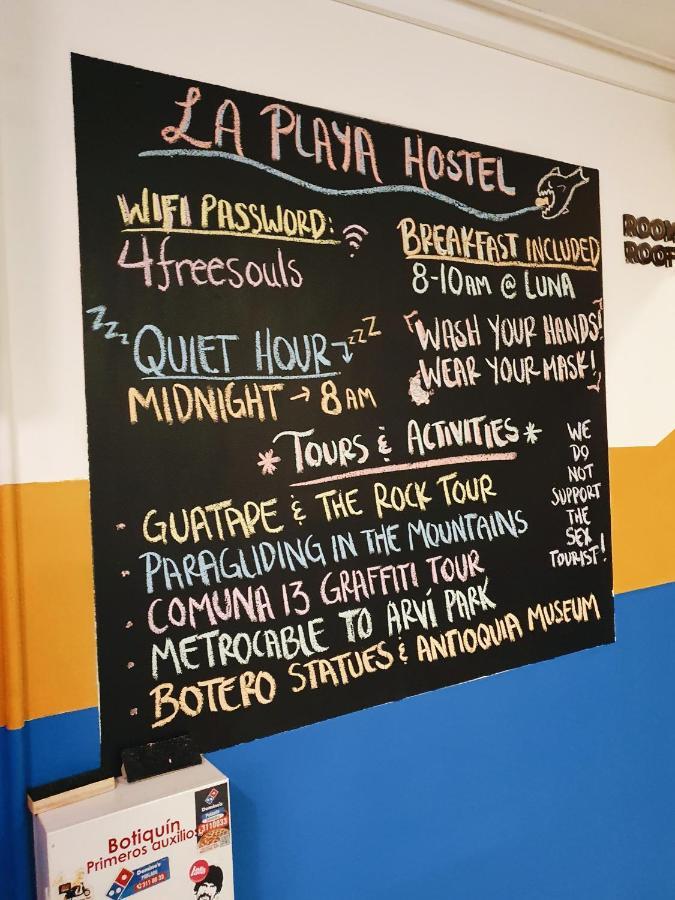 LA PLAYA HOSTEL
WIFI PASSWORD:
4freesouls
BREAKFAST INCLUDED
8-10AM @ LUNA
ZZZ QUIET HOUR ZZZ
MIDNIGHT → 8 AM
WASH YOUR HANDS!
WEAR YOUR MASK!
* TOURS & ACTIVITIES *
GUATAPE & THE ROCK TOUR
PARAGLIDING IN THE MOUNTAINS
COMUNA 13 GRAFFITI TOUR
METROCABLE TO ARVÍ PARK
BOTERO STATUES & ANTIOQUIA MUSEUM
WE
DO
NOT
SUPPORT
THE
SEX
TOURIST!
ROOM
ROOF
Botiquín
Primeros auxilios
Domino's
Domino's